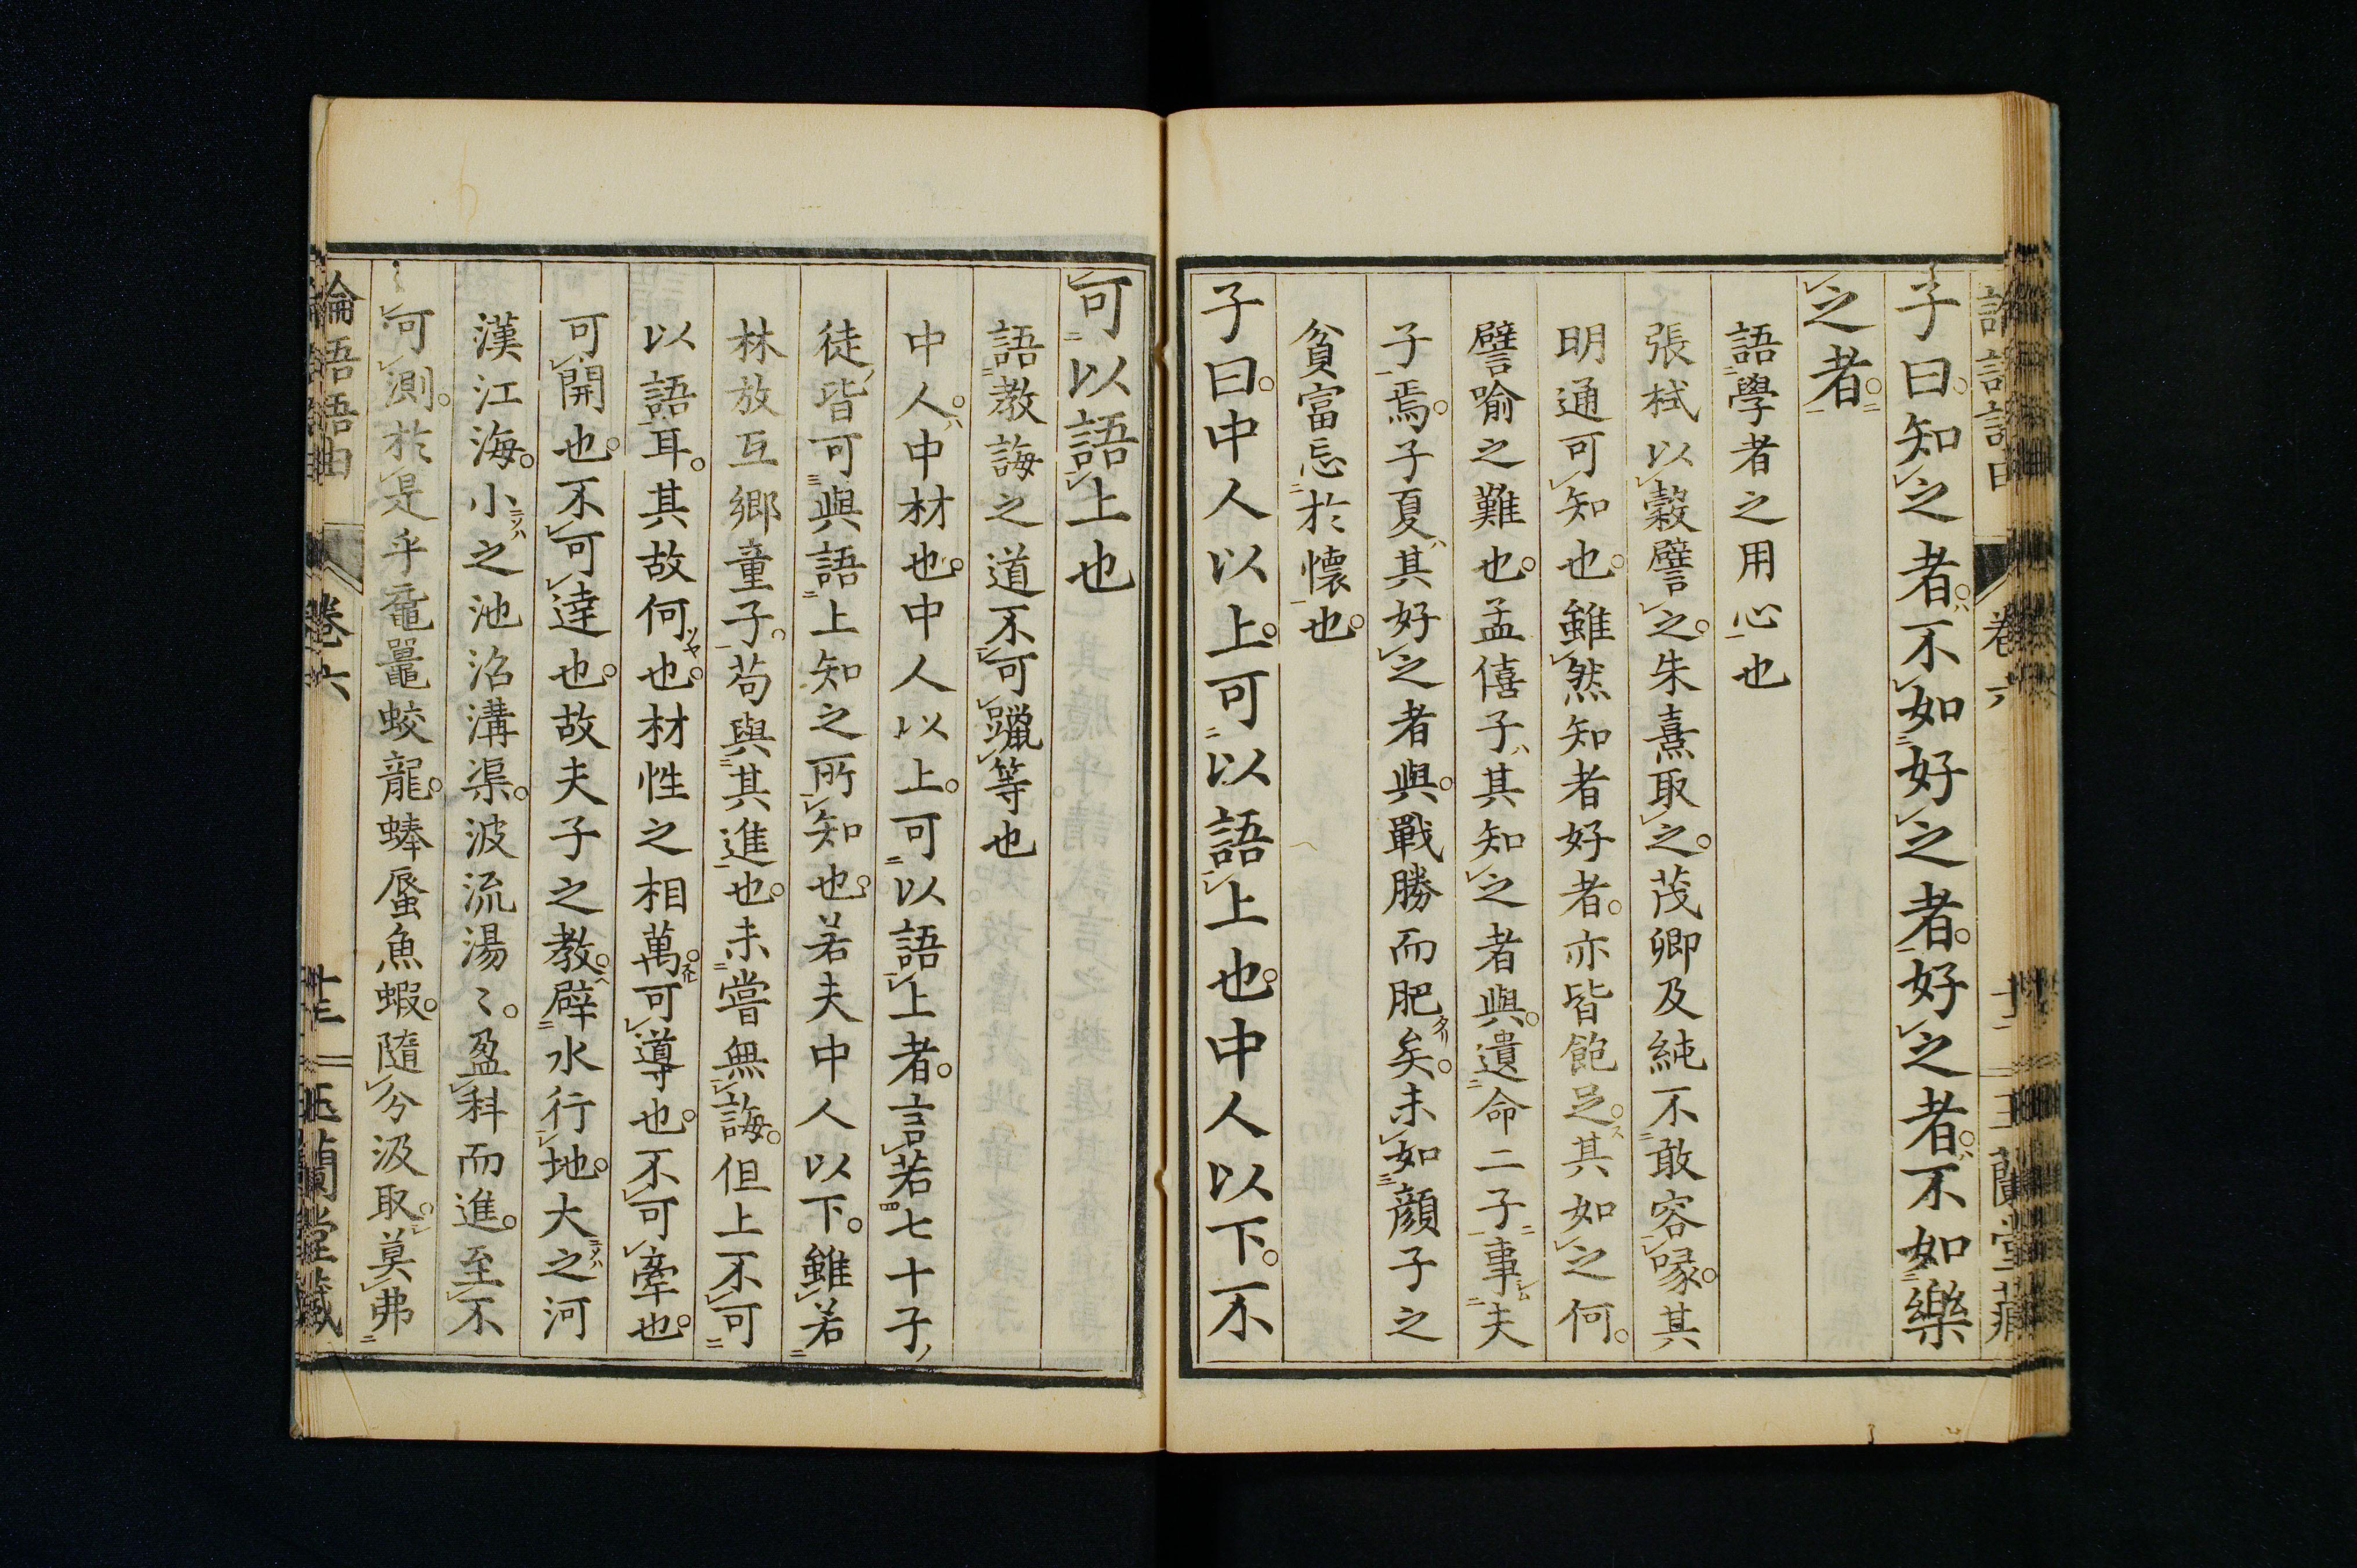 子曰。知之者。不如好之者。好之者。不如樂
之者。
語學者之用心也
張栻以穀譬之。朱熹取之。茂卿及純不敢容喙。其
明通可知也。雖然知者好者。亦皆飽足。其如之何。
譬喻之難也。孟僖子其知之者與。遺命二子事夫
子焉。子夏其好之者與。戰勝而肥矣。未如顔子之
貧富忘於懷也。
子曰。中人以上。可以語上也。中人以下。不
可以語上也
語教誨之道不可躐等也
中人。中材也。中人以上。可以語上者。言若七十子
徒皆可與語上知之所知也。若夫中人以下。雖若
林放互郷童子。苟與其進也。未嘗無誨。但上不可
以語耳。其故何也。材性之相萬。可導也。不可牽也。
可開也。不可達也。故夫子之教。辟水行地。大之河
漢江海。小之池沼溝渠。波流湯〻。盈科而進。至不
可測。於是乎黿鼉蛟龍。蜯蜃魚蝦。隨分汲取。莫弗
論語語由 卷六 十三 玉蘭堂藏